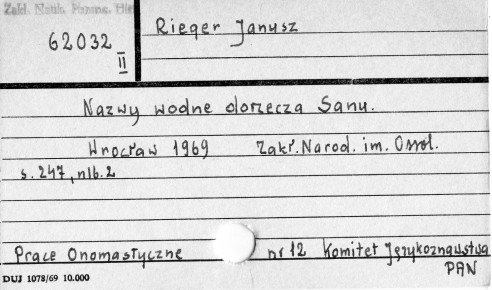 Zakł. Nauk. Pomoc. Hist
62032
II
Rieger Janusz
Nazwy wodne dorzecza Sanu.
Wrocław 1969 Zakł. Narod. im. Ossol.
s. 247, nlb. 2
Prace Onomastyczne nr 12 Komitet Językoznawstwa
PAN
DUJ 1078/69 10.000